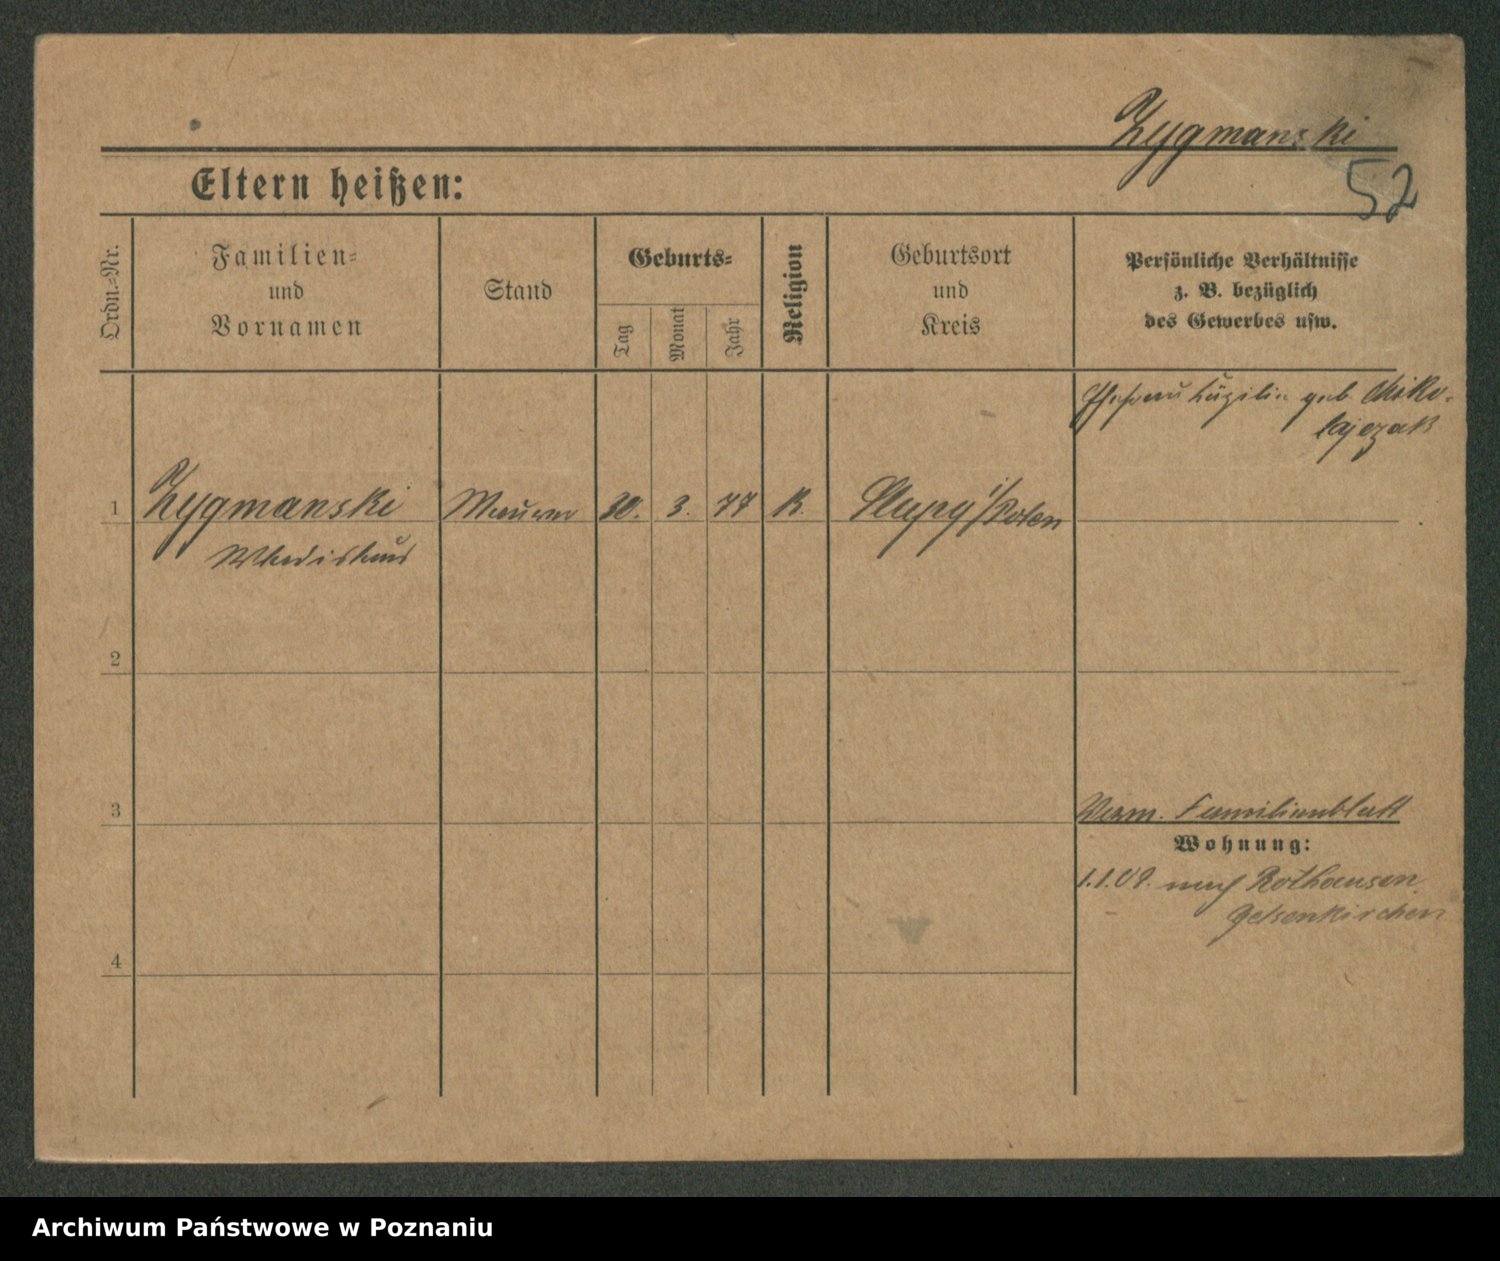 Zygmanski
52
Eltern heißen:
Ordn.-Nr.
Familien-
und
Vornamen
Stand
Geburts-
Tag
Monat
Jahr
Religion
Geburtsort
und
Kreis
Persönliche Verhältnisse
z. B. bezüglich
des Gewerbes usw.
Ehefrau Cäzilie geb. Miko-
lajczak
1 Zygmanski Maurer 30. 3. 77 K. Slupy i/Posen
Wladislaus
2
3
Verm. Familienblatt
Wohnung:
1.1.09. nach Rothausen
Gelsenkirchen
4
Archiwum Państwowe w Poznaniu